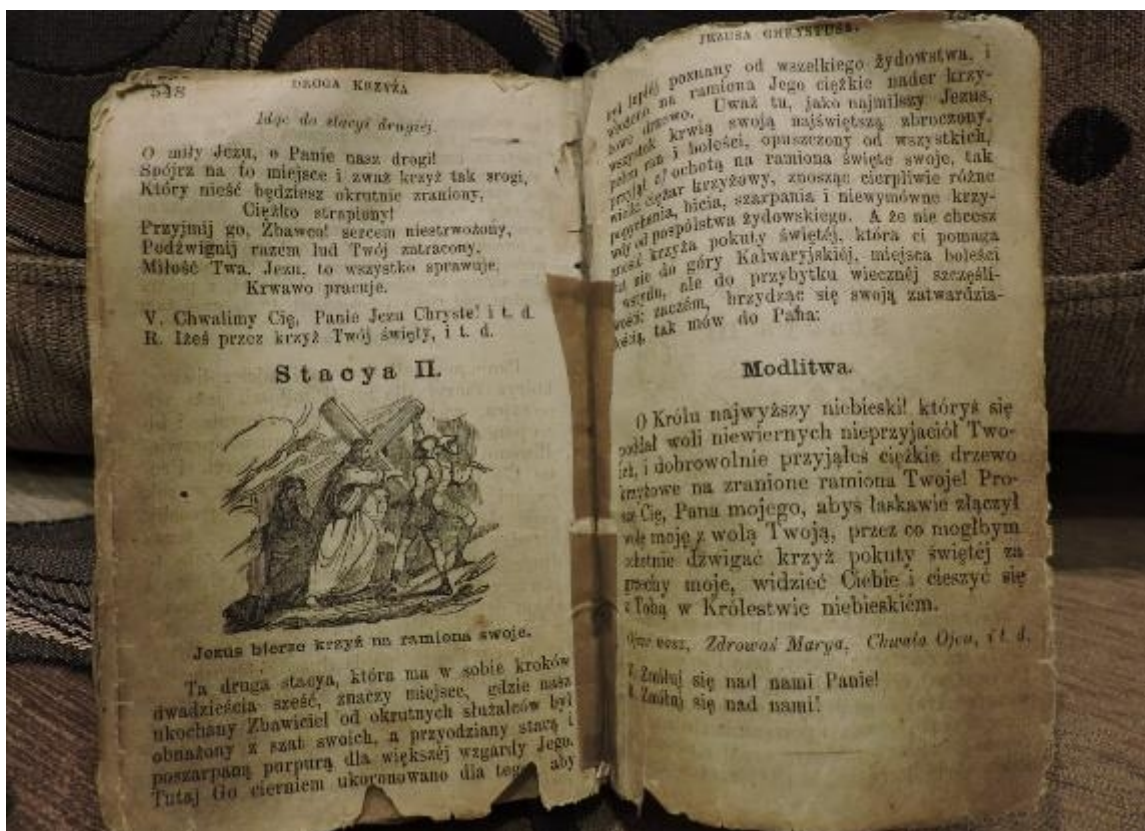 548
DROGA KRZYŻA
Idąc do stacyi drugiéj.
O miły Jezu, o Panie nasz drogi!
Spójrz na to miejsce i zważ krzyż tak srogi,
Który nieść będziesz okrutnie zraniony,
Ciężko strapiony!
Przyjmij go, Zbawco! sercem niestrwożony,
Podźwignij razem lud Twój zatracony.
Miłość Twa, Jezu, to wszystko sprawuje,
Krwawo pracuje.
V. Chwalimy Cię, Panie Jezu Chryste! i t. d.
R. Iżeś przez krzyż Twój święty, i t. d.
Stacya II.
Jezus bierze krzyż na ramiona swoje.
Ta druga stacya, która ma w sobie kroków
dwadzieścia sześć, znaczy miejsce, gdzie nasz
ukochany Zbawiciel od okrutnych służalców był
obnażony z szat swoich, a przyodziany starą i
poszarpaną purpurą dla większéj wzgardy Jego.
Tutaj Go cierniem ukoronowano dla tego, aby
JEZUSA CHRYSTUSA.
był lepiéj poznany od wszelkiego żydowstwa, i
na ramiona Jego ciężkie nader krzy-
żowe drzewo. Uważ tu, jako najmilszy Jezus,
wszystek krwią swoją najświętszą zbroczony,
pełen ran i boleści, opuszczony od wszystkich,
przyjął z ochotą na ramiona święte swoje, tak
wielki ciężar krzyżowy, znosząc cierpliwie różne
popychania, bicia, szarpania i niewymówne krzy-
wdy od pospólstwa żydowskiego. A że nie chcesz
znosić krzyża pokuty świętéj, która ci pomaga
nie do góry Kalwaryjskiéj, miejsca boleści
i wstydu, ale do przybytku wiecznéj szczęśli-
wości; zaczém, brzydząc się swoją zatwardzia-
łością, tak mów do Pana:
Modlitwa.
O Królu najwyższy niebieski! któryś się
poddał woli niewiernych nieprzyjaciół Two-
ich, i dobrowolnie przyjąłeś ciężkie drzewo
krzyżowe na zranione ramiona Twoje! Pro-
szę Cię, Pana mojego, abyś łaskawie złączył
wolę moję z wolą Twoją, przez co mogłbym
dźwigać krzyż pokuty świętéj za
grzechy moje, widzieć Ciebie i cieszyć się
z Tobą w Królestwie niebieskiém.
Ojcze nasz, Zdrowaś Marya, Chwała Ojcu, i t. d.
V. Zmiłuj się nad nami Panie!
R. Zmiłuj się nad nami!